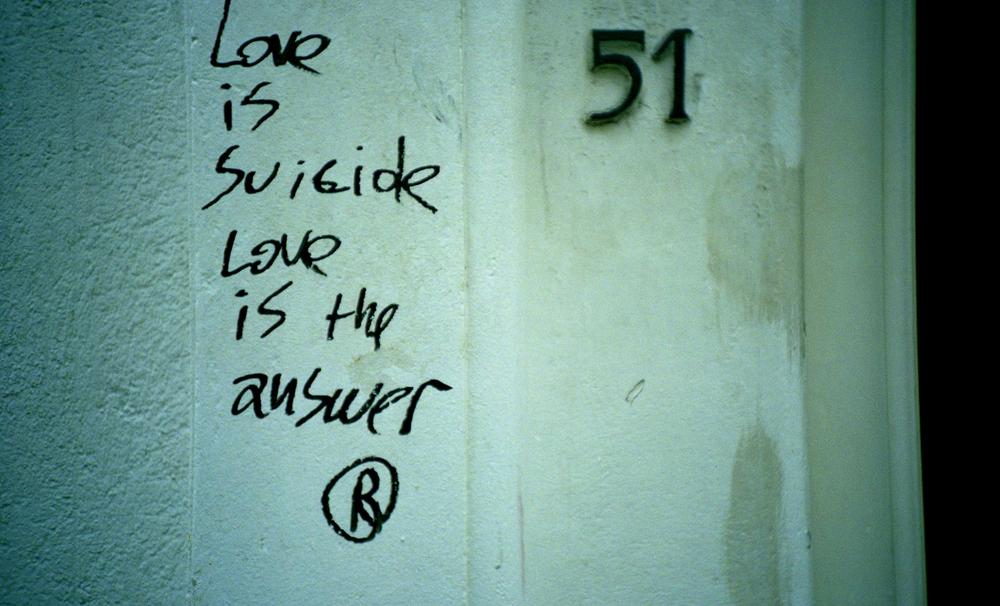 Love
is
suicide
Love
is the
answer
®
51